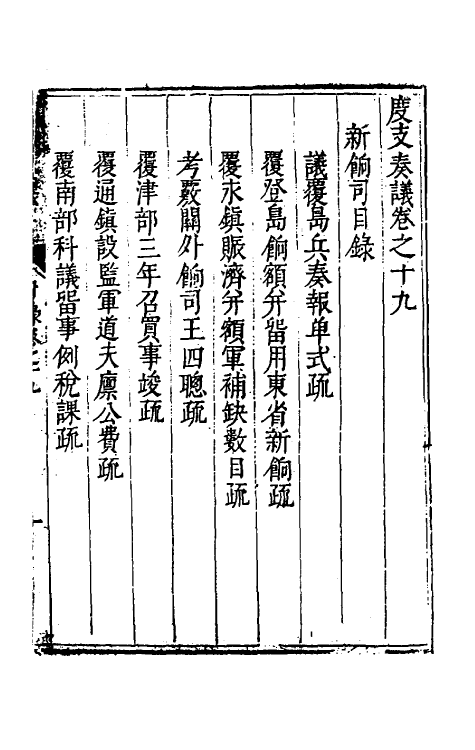 度支奏議卷之十九
新餉司目錄
議覆島兵奏報单式疏
覆登島餉額并留用東省新餉疏
覆永鎮賑濟并額軍補缺數目疏
考覈關外餉司王四聰疏
覆津部三年召買事竣疏
覆通鎮設監軍道夫廩公費疏
覆南部科議畱事例稅課疏